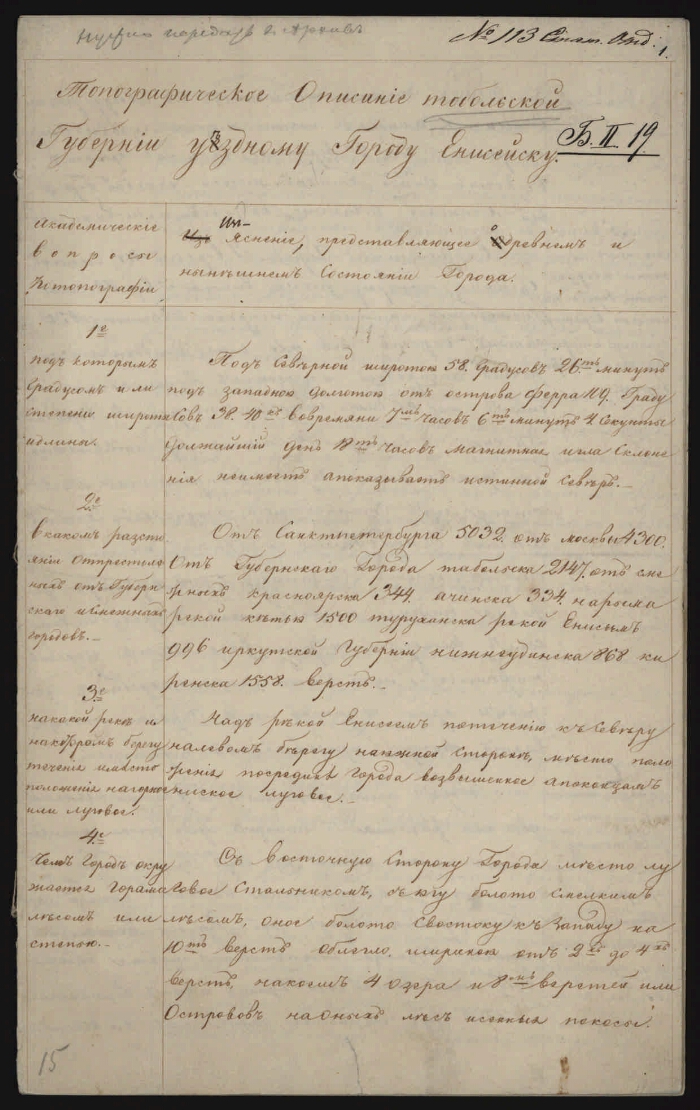 № 113 Стат. Отд.
1.
Топографическое Описаніе тобольской
Губерніи уѣздному Городу Енисейску.
Б. II 19
Академическіе
вопросы
Котопографіи
Изъ-
Ясненіе, представляющее древнемъ и
нынѣшнемъ Состояніи Города.
1е
подъ которымъ
градусомъ и ли
степенію широты
идлины.
Подъ Сѣверной широтою 58. градусовъ 26тъ минутъ
подъ западною долготою отъ острова ферра 119. Граду
совъ 38. 40къ вовремяни 7мъ часовъ 6тъ минутъ 4 Секунты
должайшій день 18тъ часовъ магнитная игла Склоне
нія неимѣетъ апоказываетъ истинной Сѣверъ.
2е
вкакомъ разсто
яніи Отпрестоль
ныхъ отъ Губерн
скаго исмежныхъ
городовъ.
Отъ Санктпетербурга 5032. отъ москвы 4300.
Отъ Губернскаго Города табольска 2147. отъ сме
жныхъ красноярска 344. ачинска 334. нарыма
рѣкой кѣтью 1500 туруханска рѣкой Енисеемъ
996 иркутской Губерніи нижнеудинска 868 ки
ренска 1558. верстъ.
3е
накакой рекѣ и
накотромъ берегу
теченіе имѣсто
положеніе нагорное
или луговое.
Надъ рѣкой Енисеемъ потеченію къ Сѣверу
налевомъ бѣрегу наюжной Сторонѣ, мѣсто поло
женіе посредине города возвышенное апоконцамъ
ниское луговое.
4е
Чемъ Городъ окру
жается Горами
лѣсомъ или
степью.
Съ восточную Сторону Города мѣсто лу
говое Стальникомъ, съ югу болото смелкимъ
лѣсомъ, оное болото Свостоку къ Западу на
10тъ верстъ облегло шириною отъ 2хъ до 4хъ
верстъ, накоемъ 4 озера и 8мъ веретей или
Острововъ наоныхъ лѣсъ исенныя покосы.
15